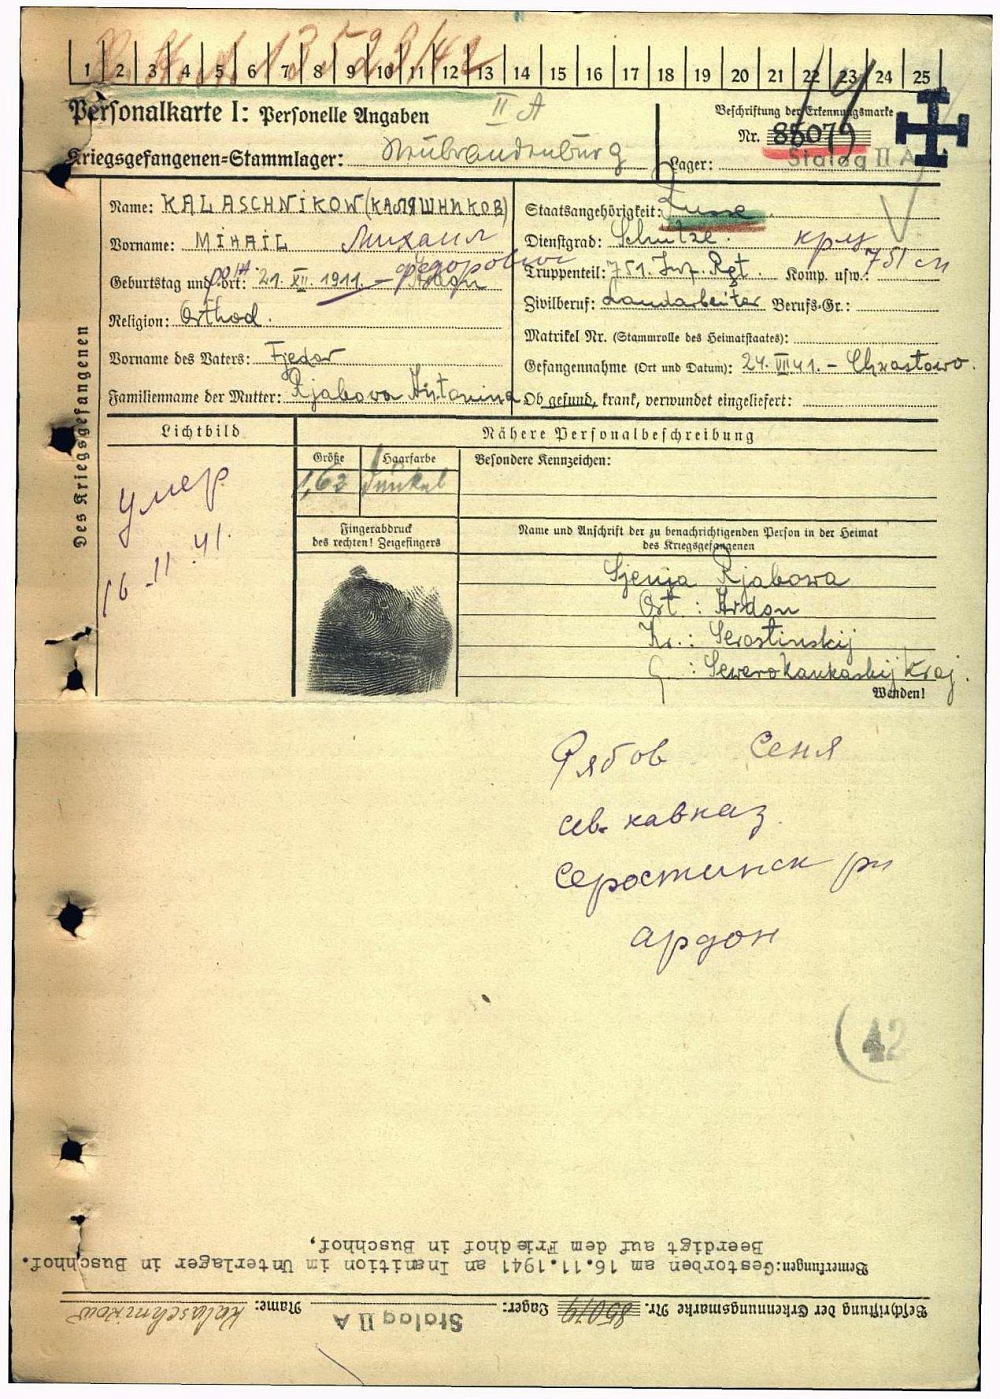 R. A. A 13523/42
1 2 3 4 5 6 7 8 9 10 11 12 13 14 15 16 17 18 19 20 21 22 23 24 25
Personalkarte I: Personelle Angaben II A
Beschriftung der Erkennungsmarke
Nr. 85079
Kriegsgefangenen=Stammlager: Neubrandenburg
Lager: Stalag II A
Des Kriegsgefangenen
Name: KALASCHNIKOW (КАЛЯШНИКОВ)
Vorname: MIHAIL Михаил
Федорович
Geburtstag und =ort: 21. XII. 1911. – Ardon
Religion: Orthod.
Vorname des Vaters: Fjedor
Familienname der Mutter: Rjabowa Antonina
Staatsangehörigkeit: Russe
Dienstgrad: Schütze. кр
Truppenteil: 751. Inf. Rgt. Komp. usw.: 751 сп
Zivilberuf: Landarbeiter Berufs=Gr.:
Matrikel Nr. (Stammrolle des Heimatstaates):
Gefangennahme (Ort und Datum): 24. VII 41. – Chrastowo.
Ob gesund, krank, verwundet eingeliefert:
Lichtbild
умер
16.11.41.
Nähere Personalbeschreibung
Größe Haarfarbe Besondere Kennzeichen:
1,63 dunkel
Fingerabdruck
des rechten! Zeigefingers
Name und Anschrift der zu benachrichtigenden Person in der Heimat
des Kriegsgefangenen
Sjenja Rjabowa
Ort : Ardon
Kr.: Serostinskij
: Sewerokaukaskij Kraj.
Wenden!
Рябов Сеня
сев. кавказ
Серостинск рн
ардон
42
Bemerkungen: Gestorben am 16.11.1941 an Inanition im Unterlager in Buschhof.
Beerdigt auf dem Friedhof in Buschhof,
Beschriftung der Erkennungsmarke Nr. 85079 Lager: Stalag II A Name: Kalaschnikow